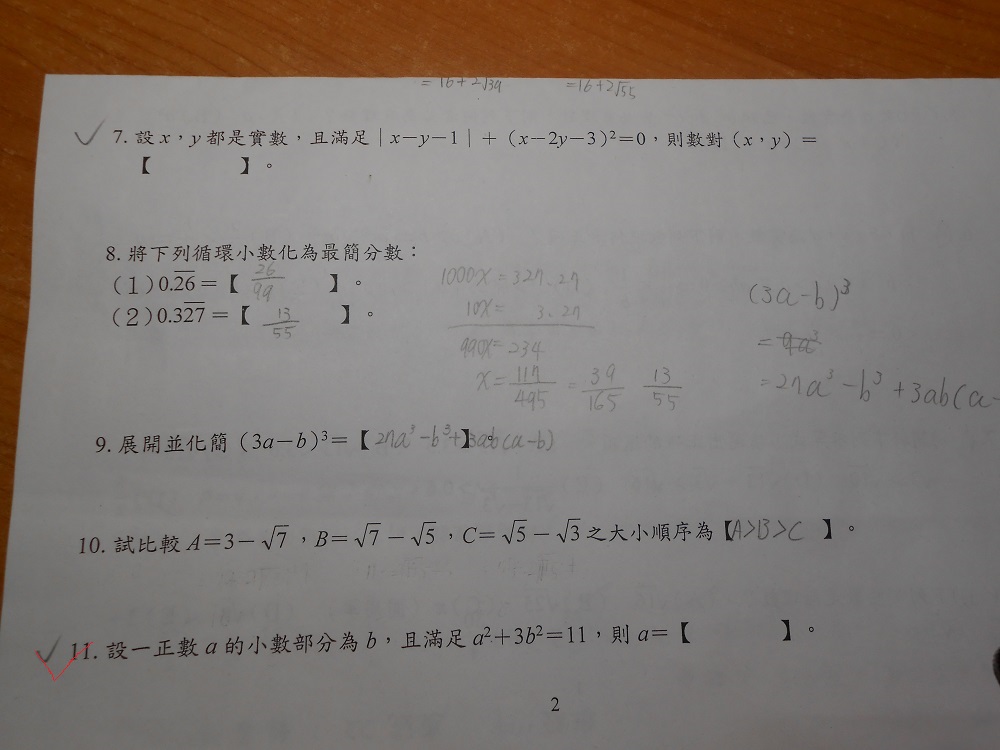 =16+2√39 =16+2√55
7. 設 x，y 都是實數，且滿足 | x－y－1 | + (x－2y－3)²=0，則數對 (x，y) =
【 】。
8. 將下列循環小數化為最簡分數：
(1) 0.2̅6̅ =【 26/99 】。
(2) 0.32̅7̅ =【 13/55 】。
1000x = 327.27
10x = 3.27
990x = 234
x = 117/495 = 39/165 13/55
(3a-b)³
= 9a³
= 27a³-b³+3ab(a-
9. 展開並化簡 (3a－b)³=【27a³-b³+】3ab(a-b)
10. 試比較 A=3－√7，B=√7－√5，C=√5－√3 之大小順序為【A>B>C 】。
11. 設一正數 a 的小數部分為 b，且滿足 a²+3b²=11，則 a=【 】。
2